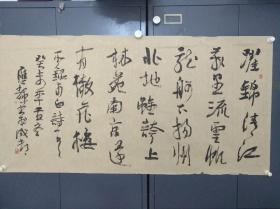 濯錦清江
萬里流雲帆
龍舸下揚州
北地雖誇上
林苑南京還
有散花樓
錄李白詩一首
癸未年